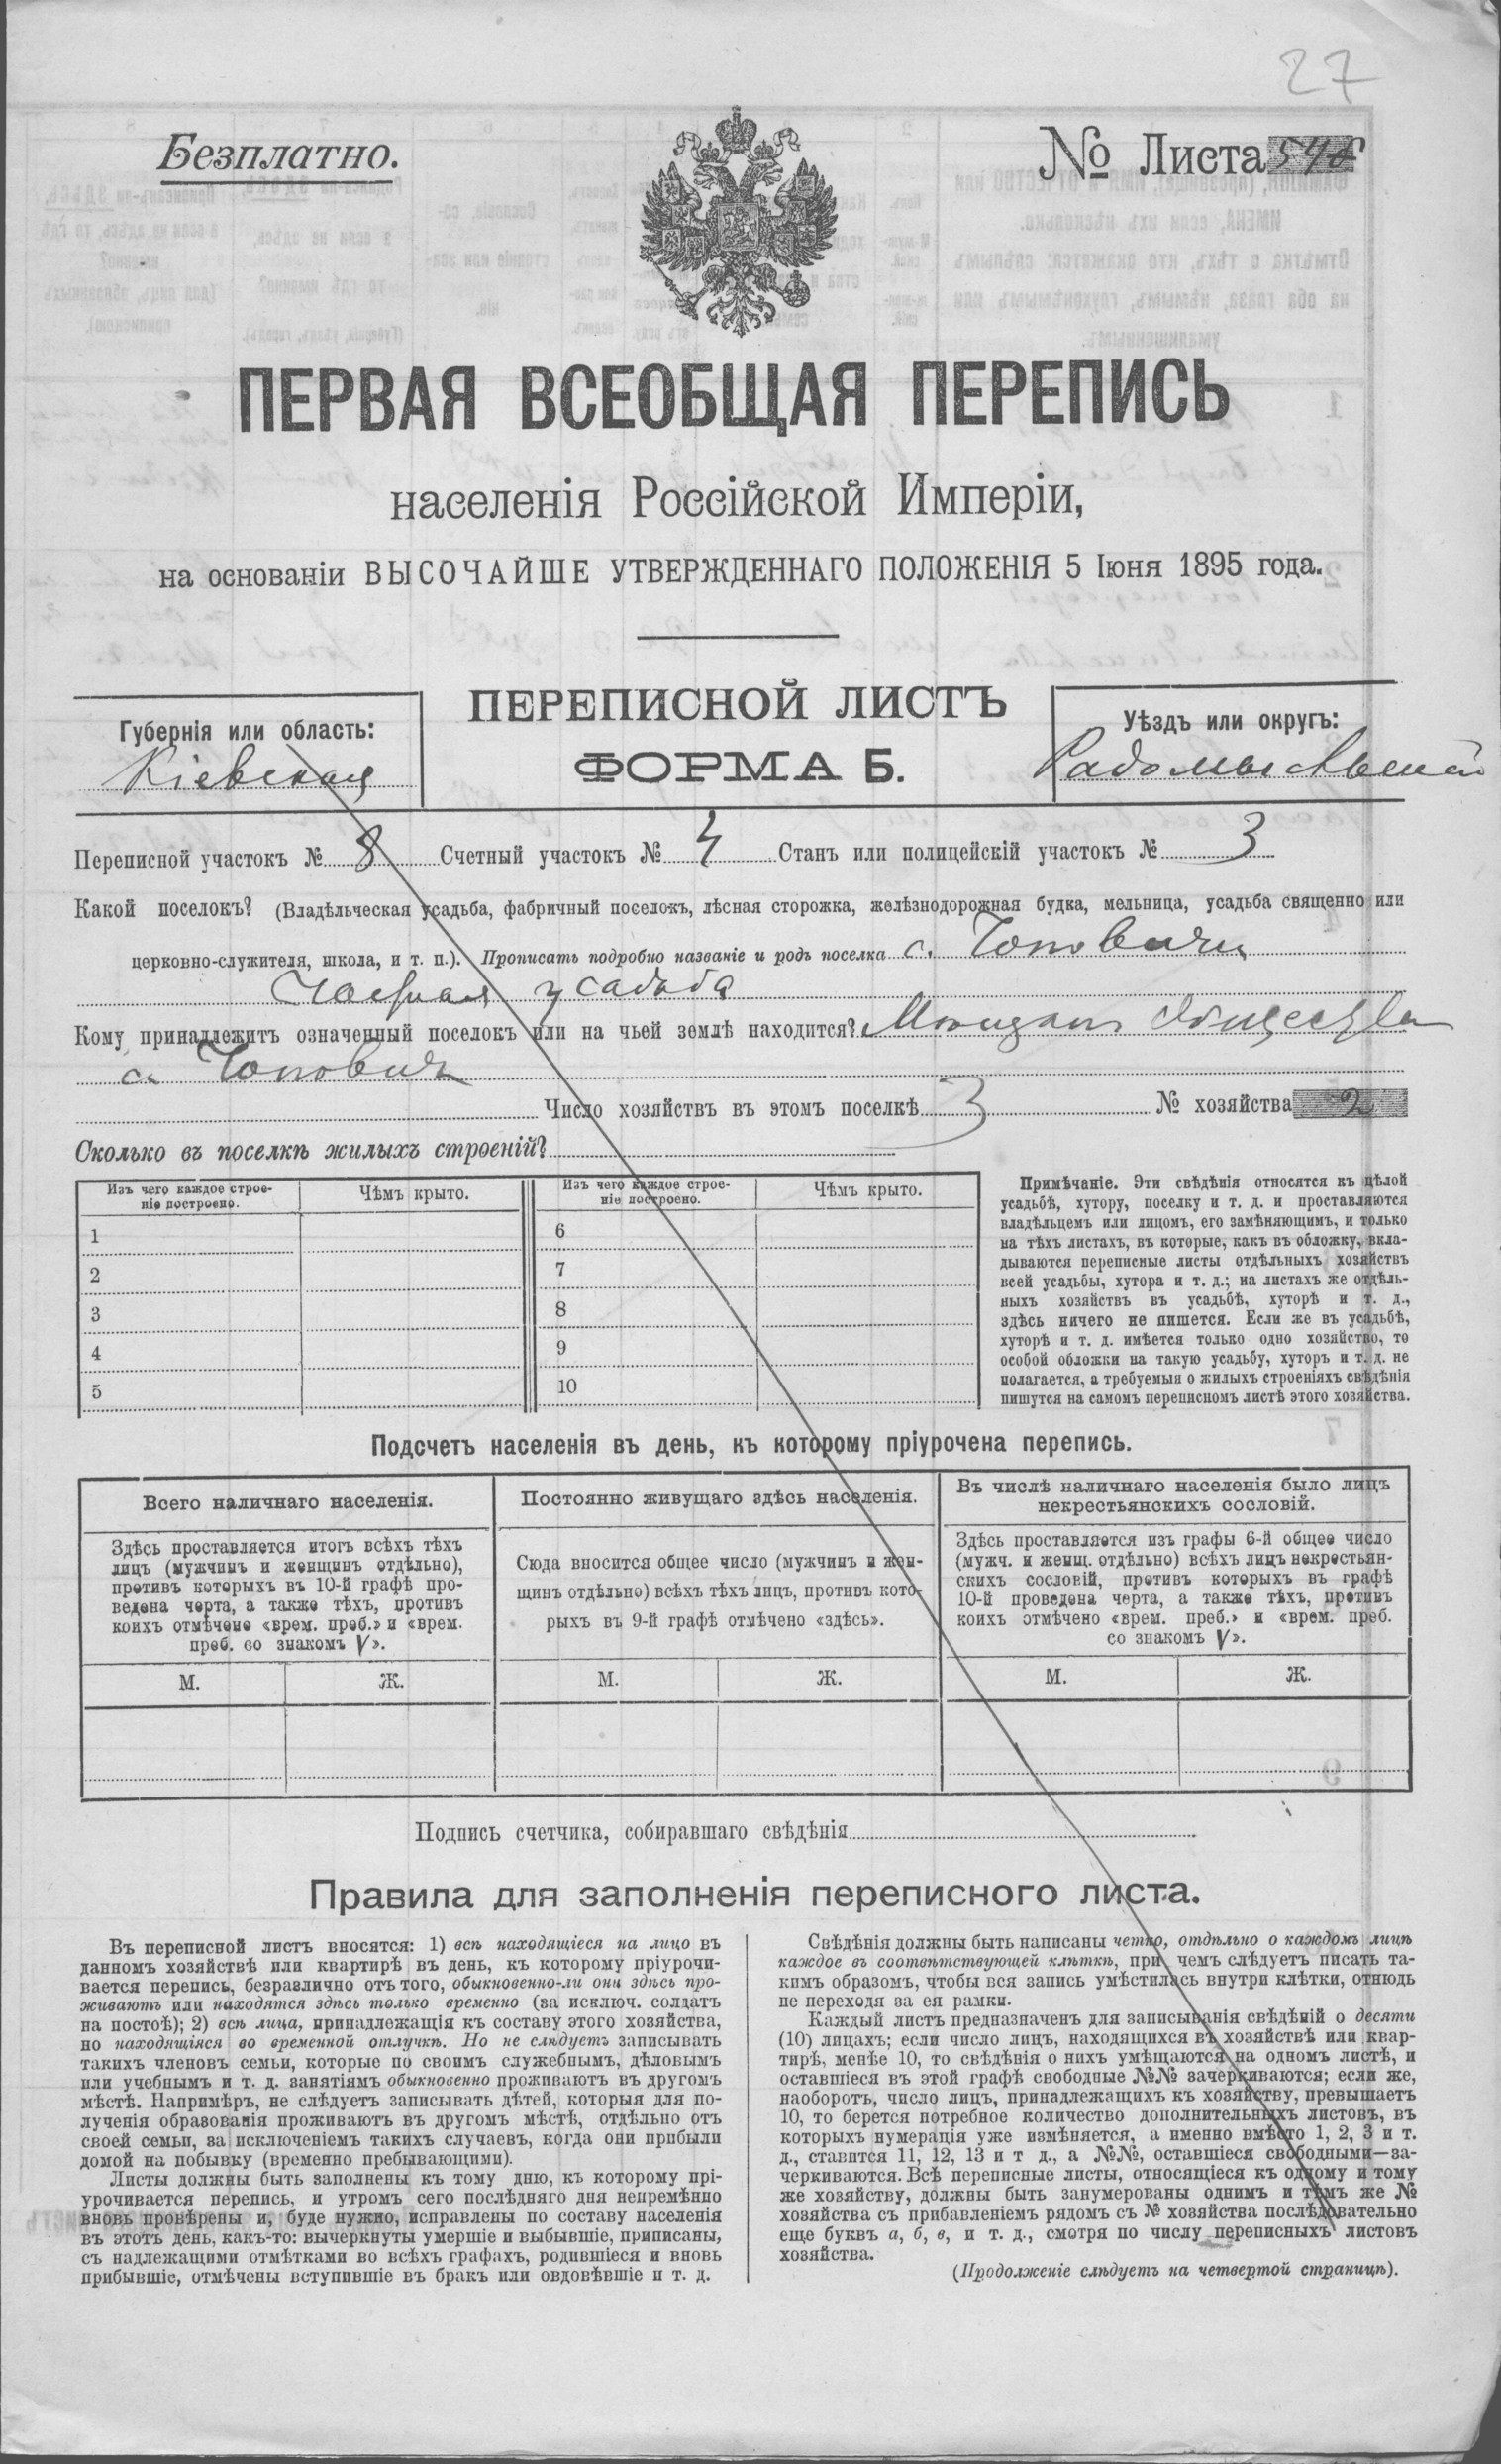 27
Безплатно.
№ Листа 548
ПЕРВАЯ ВСЕОБЩАЯ ПЕРЕПИСЬ
населенія Россійской Имперіи,
на основаніи ВЫСОЧАЙШЕ УТВЕРЖДЕННАГО ПОЛОЖЕНІЯ 5 Іюня 1895 года.
ПЕРЕПИСНОЙ ЛИСТЪ
ФОРМА Б.
Губернія или область:
Кіевская
Уѣздъ или округъ:
Радомысльскій
Переписной участокъ № 8 Счетный участокъ № 4 Станъ или полицейскій участокъ № 3
Какой поселокъ? (Владѣльческая усадьба, фабричный поселокъ, лѣсная сторожка, желѣзнодорожная будка, мельница, усадьба священно или
церковно-служителя, школа, и т. п.). Прописать подробно названіе и родъ поселка с. Чоповичи
усадьба
Кому принадлежитъ означенный поселокъ или на чьей землѣ находится? Общества
с. Чоповичъ
Число хозяйствъ въ этомъ поселкѣ 3 № хозяйства 2
Сколько въ поселкѣ жилыхъ строеній?
Изъ чего каждое строе-
ніе построено.
Чѣмъ крыто.
Изъ чего каждое строе-
ніе построено.
Чѣмъ крыто.
1
2
3
4
5
6
7
8
9
10
Примѣчаніе. Эти свѣдѣнія относятся къ цѣлой
усадьбѣ, хутору, поселку и т. д. и проставляются
владѣльцемъ или лицомъ, его замѣняющимъ, и только
на тѣхъ листахъ, въ которые, какъ въ обложку, вкла-
дываются переписные листы отдѣльныхъ хозяйствъ
всей усадьбы, хутора и т. д.; на листахъ же отдѣль-
ныхъ хозяйствъ въ усадьбѣ, хуторѣ и т. д.,
здѣсь ничего не пишется. Если же въ усадьбѣ,
хуторѣ и т. д. имѣется только одно хозяйство, то
особой обложки на такую усадьбу, хуторъ и т. д. не
полагается, а требуемыя о жилыхъ строеніяхъ свѣдѣнія
пишутся на самомъ переписномъ листѣ этого хозяйства.
Подсчетъ населенія въ день, къ которому пріурочена перепись.
Всего наличнаго населенія.
Здѣсь проставляется итогъ всѣхъ тѣхъ
лицъ (мужчинъ и женщинъ отдѣльно),
противъ которыхъ въ 10-й графѣ про-
ведена черта, а также тѣхъ, противъ
коихъ отмѣчено «врем. преб.» и «врем.
преб. со знакомъ V».
М. Ж.
Постоянно живущаго здѣсь населенія.
Сюда вносится общее число (мужчинъ и жен-
щинъ отдѣльно) всѣхъ тѣхъ лицъ, противъ кото-
рыхъ въ 9-й графѣ отмѣчено «здѣсь».
М. Ж.
Въ числѣ наличнаго населенія было лицъ
некрестьянскихъ сословій.
Здѣсь проставляется изъ графы 6-й общее число
(мужч. и женщ. отдѣльно) всѣхъ лицъ некрестьян-
скихъ сословій, противъ которыхъ въ графѣ
10-й проведена черта, а также тѣхъ, противъ
коихъ отмѣчено «врем. преб.» и «врем. преб.
со знакомъ V».
М. Ж.
Подпись счетчика, собиравшаго свѣдѣнія
Правила для заполненія переписного листа.
Въ переписной листъ вносятся: 1) всѣ находящіеся на лицо въ
данномъ хозяйствѣ или квартирѣ въ день, къ которому пріурочи-
вается перепись, безразлично отъ того, обыкновенно-ли они здѣсь про-
живаютъ или находятся здѣсь только временно (за исключ. солдатъ
на постоѣ); 2) всѣ лица, принадлежащія къ составу этого хозяйства,
но находящіяся во временной отлучкѣ. Но не слѣдуетъ записывать
такихъ членовъ семьи, которые по своимъ служебнымъ, дѣловымъ
или учебнымъ и т. д. занятіямъ обыкновенно проживаютъ въ другомъ
мѣстѣ. Напримѣръ, не слѣдуетъ записывать дѣтей, которыя для по-
лученія образованія проживаютъ въ другомъ мѣстѣ, отдѣльно отъ
своей семьи, за исключеніемъ такихъ случаевъ, когда они прибыли
домой на побывку (временно пребывающими).
Листы должны быть заполнены къ тому дню, къ которому прі-
урочивается перепись, и утромъ сего послѣдняго дня непремѣнно
вновь провѣрены и, буде нужно, исправлены по составу населенія
въ этотъ день, какъ-то: вычеркнуты умершіе и выбывшіе, приписаны,
съ надлежащими отмѣтками во всѣхъ графахъ, родившіеся и вновь
прибывшіе, отмѣчены вступившіе въ бракъ или овдовѣвшіе и т. д.
Свѣдѣнія должны быть написаны четко, отдѣльно о каждомъ лицѣ
каждое въ соотвѣтствующей клѣткѣ, при чемъ слѣдуетъ писать та-
кимъ образомъ, чтобы вся запись умѣстилась внутри клѣтки, отнюдь
не переходя за ея рамки.
Каждый листъ предназначенъ для записыванія свѣдѣній о десяти
(10) лицахъ; если число лицъ, находящихся въ хозяйствѣ или квар-
тирѣ, менѣе 10, то свѣдѣнія о нихъ умѣщаются на одномъ листѣ, и
оставшіеся въ этой графѣ свободные №№ зачеркиваются; если же,
наоборотъ, число лицъ, принадлежащихъ къ хозяйству, превышаетъ
10, то берется потребное количество дополнительныхъ листовъ, въ
которыхъ нумерація уже измѣняется, а именно вмѣсто 1, 2, 3 и т.
д., ставится 11, 12, 13 и т д., а №№, оставшіеся свободными—за-
черкиваются. Всѣ переписные листы, относящіеся къ одному и тому
же хозяйству, должны быть занумерованы однимъ и тѣмъ же №
хозяйства съ прибавленіемъ рядомъ съ № хозяйства послѣдовательно
еще буквъ а, б, в, и т. д., смотря по числу переписныхъ листовъ
хозяйства.
(Продолженіе слѣдуетъ на четвертой страницѣ).